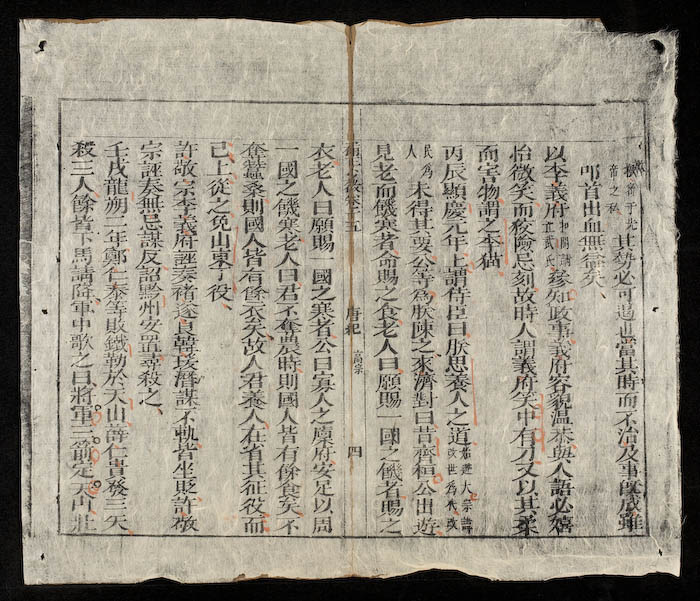 其勢必可遏也當其時而不治及事既成雖
叩首出血無益矣、
以李義府立武氏參知政事義府容貌溫恭與人語必嬉
怡微笑而狡險忌刻故時人謂義府笑中有刀又以其柔
而害物謂之李猫
丙辰顯慶元年上謂侍臣曰朕思養人之道若避太宗諱改世為代改
民為人未得其要公等為朕陳之來濟對曰昔齊桓公出遊
見老而饑寒者命賜之食老人曰願賜一國之饑者賜之
卷十五 唐紀 高宗 四
衣老人曰願賜一國之寒者公曰寡人之廩府安足以周
一國之饑寒老人曰君不奪農時則國人皆有餘食矣不
奪蠶桑則國人皆有餘衣矣故人君養人在省其征役而
已上從之免山東丁役、
許敬宗李義府誣奏褚遂良韓瑗潛謀不軌皆坐貶許敬
宗誣奏無忌謀反詔黔州安置尋殺之、
壬戌龍朔二年鄭仁泰等敗鐵勒於天山薛仁貴發三矢
殺三人餘皆下馬請降軍中歌之曰將軍三箭定天山壯